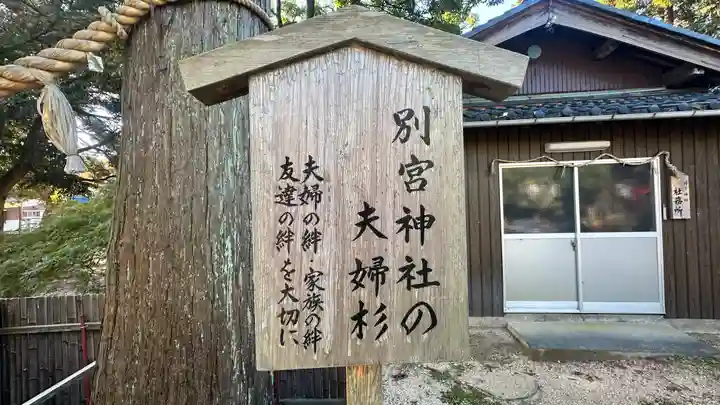 別宮神社の
夫婦杉
夫婦の絆・家族の絆
友達の絆を大切に
社務所